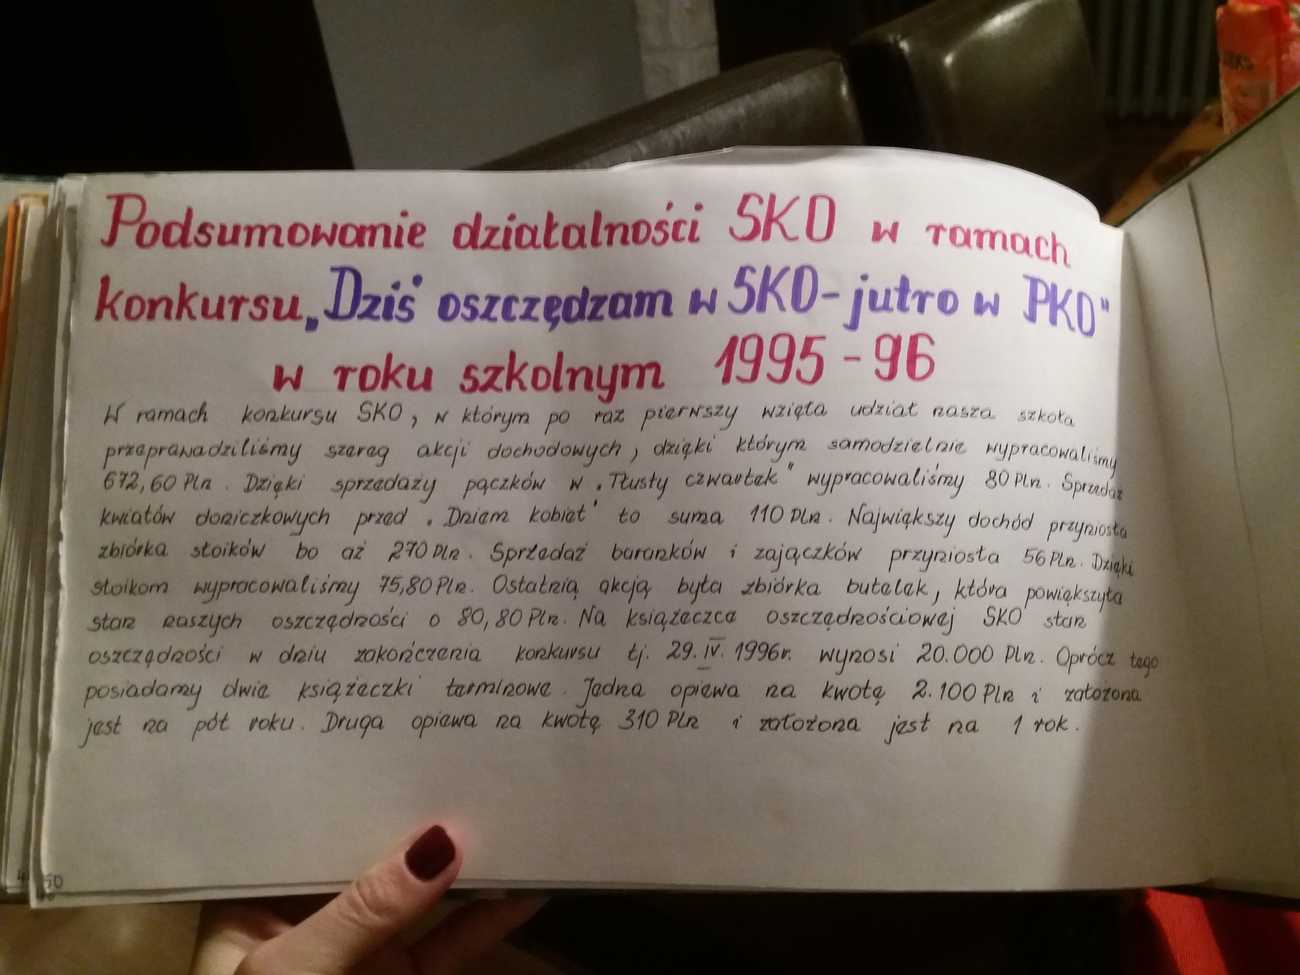 Podsumowanie działalności SKO w ramach
konkursu „Dziś oszczędzam w SKO - jutro w PKO"
w roku szkolnym 1995 - 96
W ramach konkursu SKO, w którym po raz pierwszy wzięła udział nasza szkoła
przeprowadziliśmy szereg akcji dochodowych, dzięki którym samodzielnie wypracowaliśmy
672,60 Pln. Dzięki sprzedaży pączków w „Tłusty czwartek" wypracowaliśmy 80 Pln. Sprzedaż
kwiatów doniczkowych przed „Dniem kobiet" to suma 110 Pln. Największy dochód przyniosła
zbiórka słoików bo aż 270 Pln. Sprzedaż baranków i zajączków przyniosła 56 Pln. Dzięki
stoikom wypracowaliśmy 75,80 Pln. Ostatnią akcją była zbiórka butelek, która powiększyła
stan naszych oszczędności o 80,80 Pln. Na książeczce oszczędnościowej SKO stan
oszczędności w dniu zakończenia konkursu tj. 29. IV. 1996r. wynosi 20.000 Pln. Oprócz tego
posiadamy dwie książeczki terminowe. Jedna opiewa na kwotę 2.100 Pln i założona
jest na pół roku. Druga opiewa na kwotę 310 Pln i założona jest na 1 rok.
50